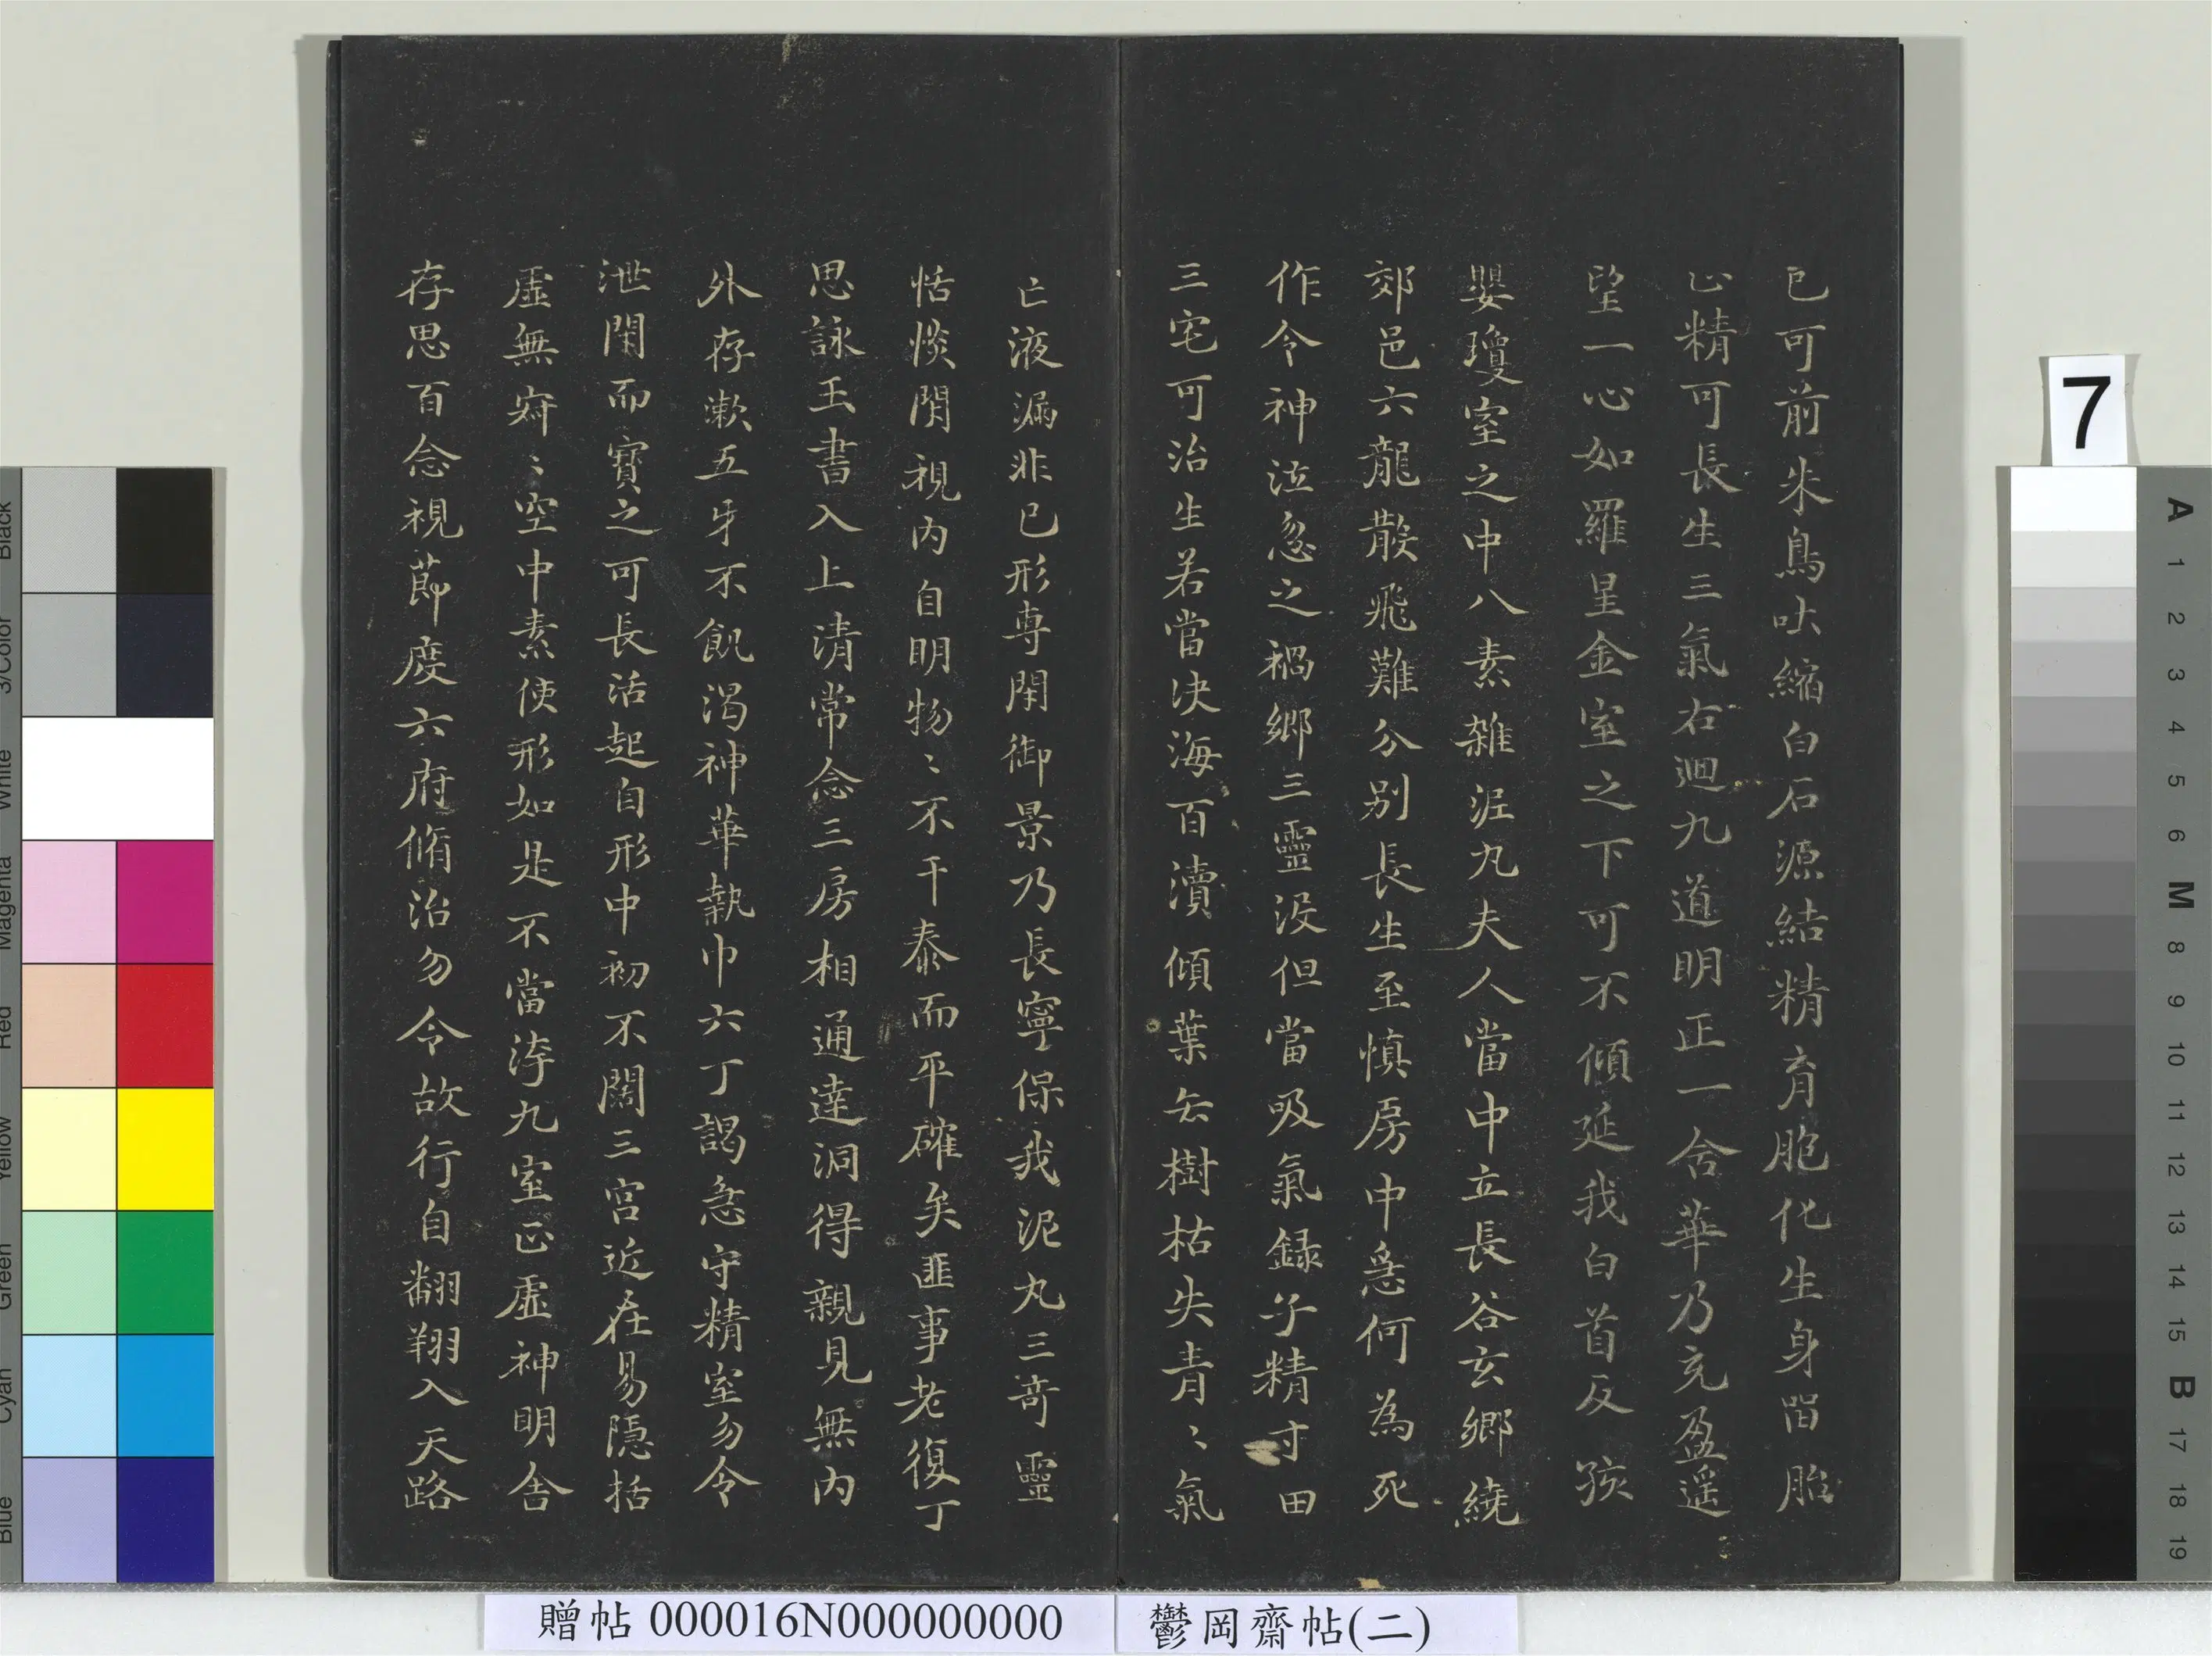 已可前朱鳥吐縮白石源結精育胞化生身留胎
止精可長生三氣右迴九道明正一含華乃充盈遥
望一心如羅星金室之下可不傾延我白首反孩
嬰瓊室之中八素雜涯九夫人當中立長谷玄鄉繞
郊邑六龍散飛難分别長生至慎房中急何為死
作令神泣忽之禍鄉三靈没但當吸氣録子精寸田
三宅可治生若當决海百瀆傾葉去樹枯失青〻氣
亡液漏非已形専閑御景乃長寧保我泥丸三竒靈
恬惔閑視内自明物〻不干泰而平確矣匪事老復丁
思詠玉書入上清常念三房相通達洞得親見無内
外存漱五牙不飢渴神華執巾六丁謁急守精室勿令
泄閉而寶之可長活起自形中初不闊三宫近在易隱括
虚無寂〻空中素使形如是不當洿九室正虚神明舍
存思百念視節度六府脩治勿令故行自翱翔入天路
7
A 1 2 3 4 5 6 M 8 9 10 11 12 13 14 15 B 17 18 19
Black
3/Color
White
Magenta
Red
Yellow
Green
Cyan
Blue
贈帖 000016N000000000
鬱岡齋帖(二)